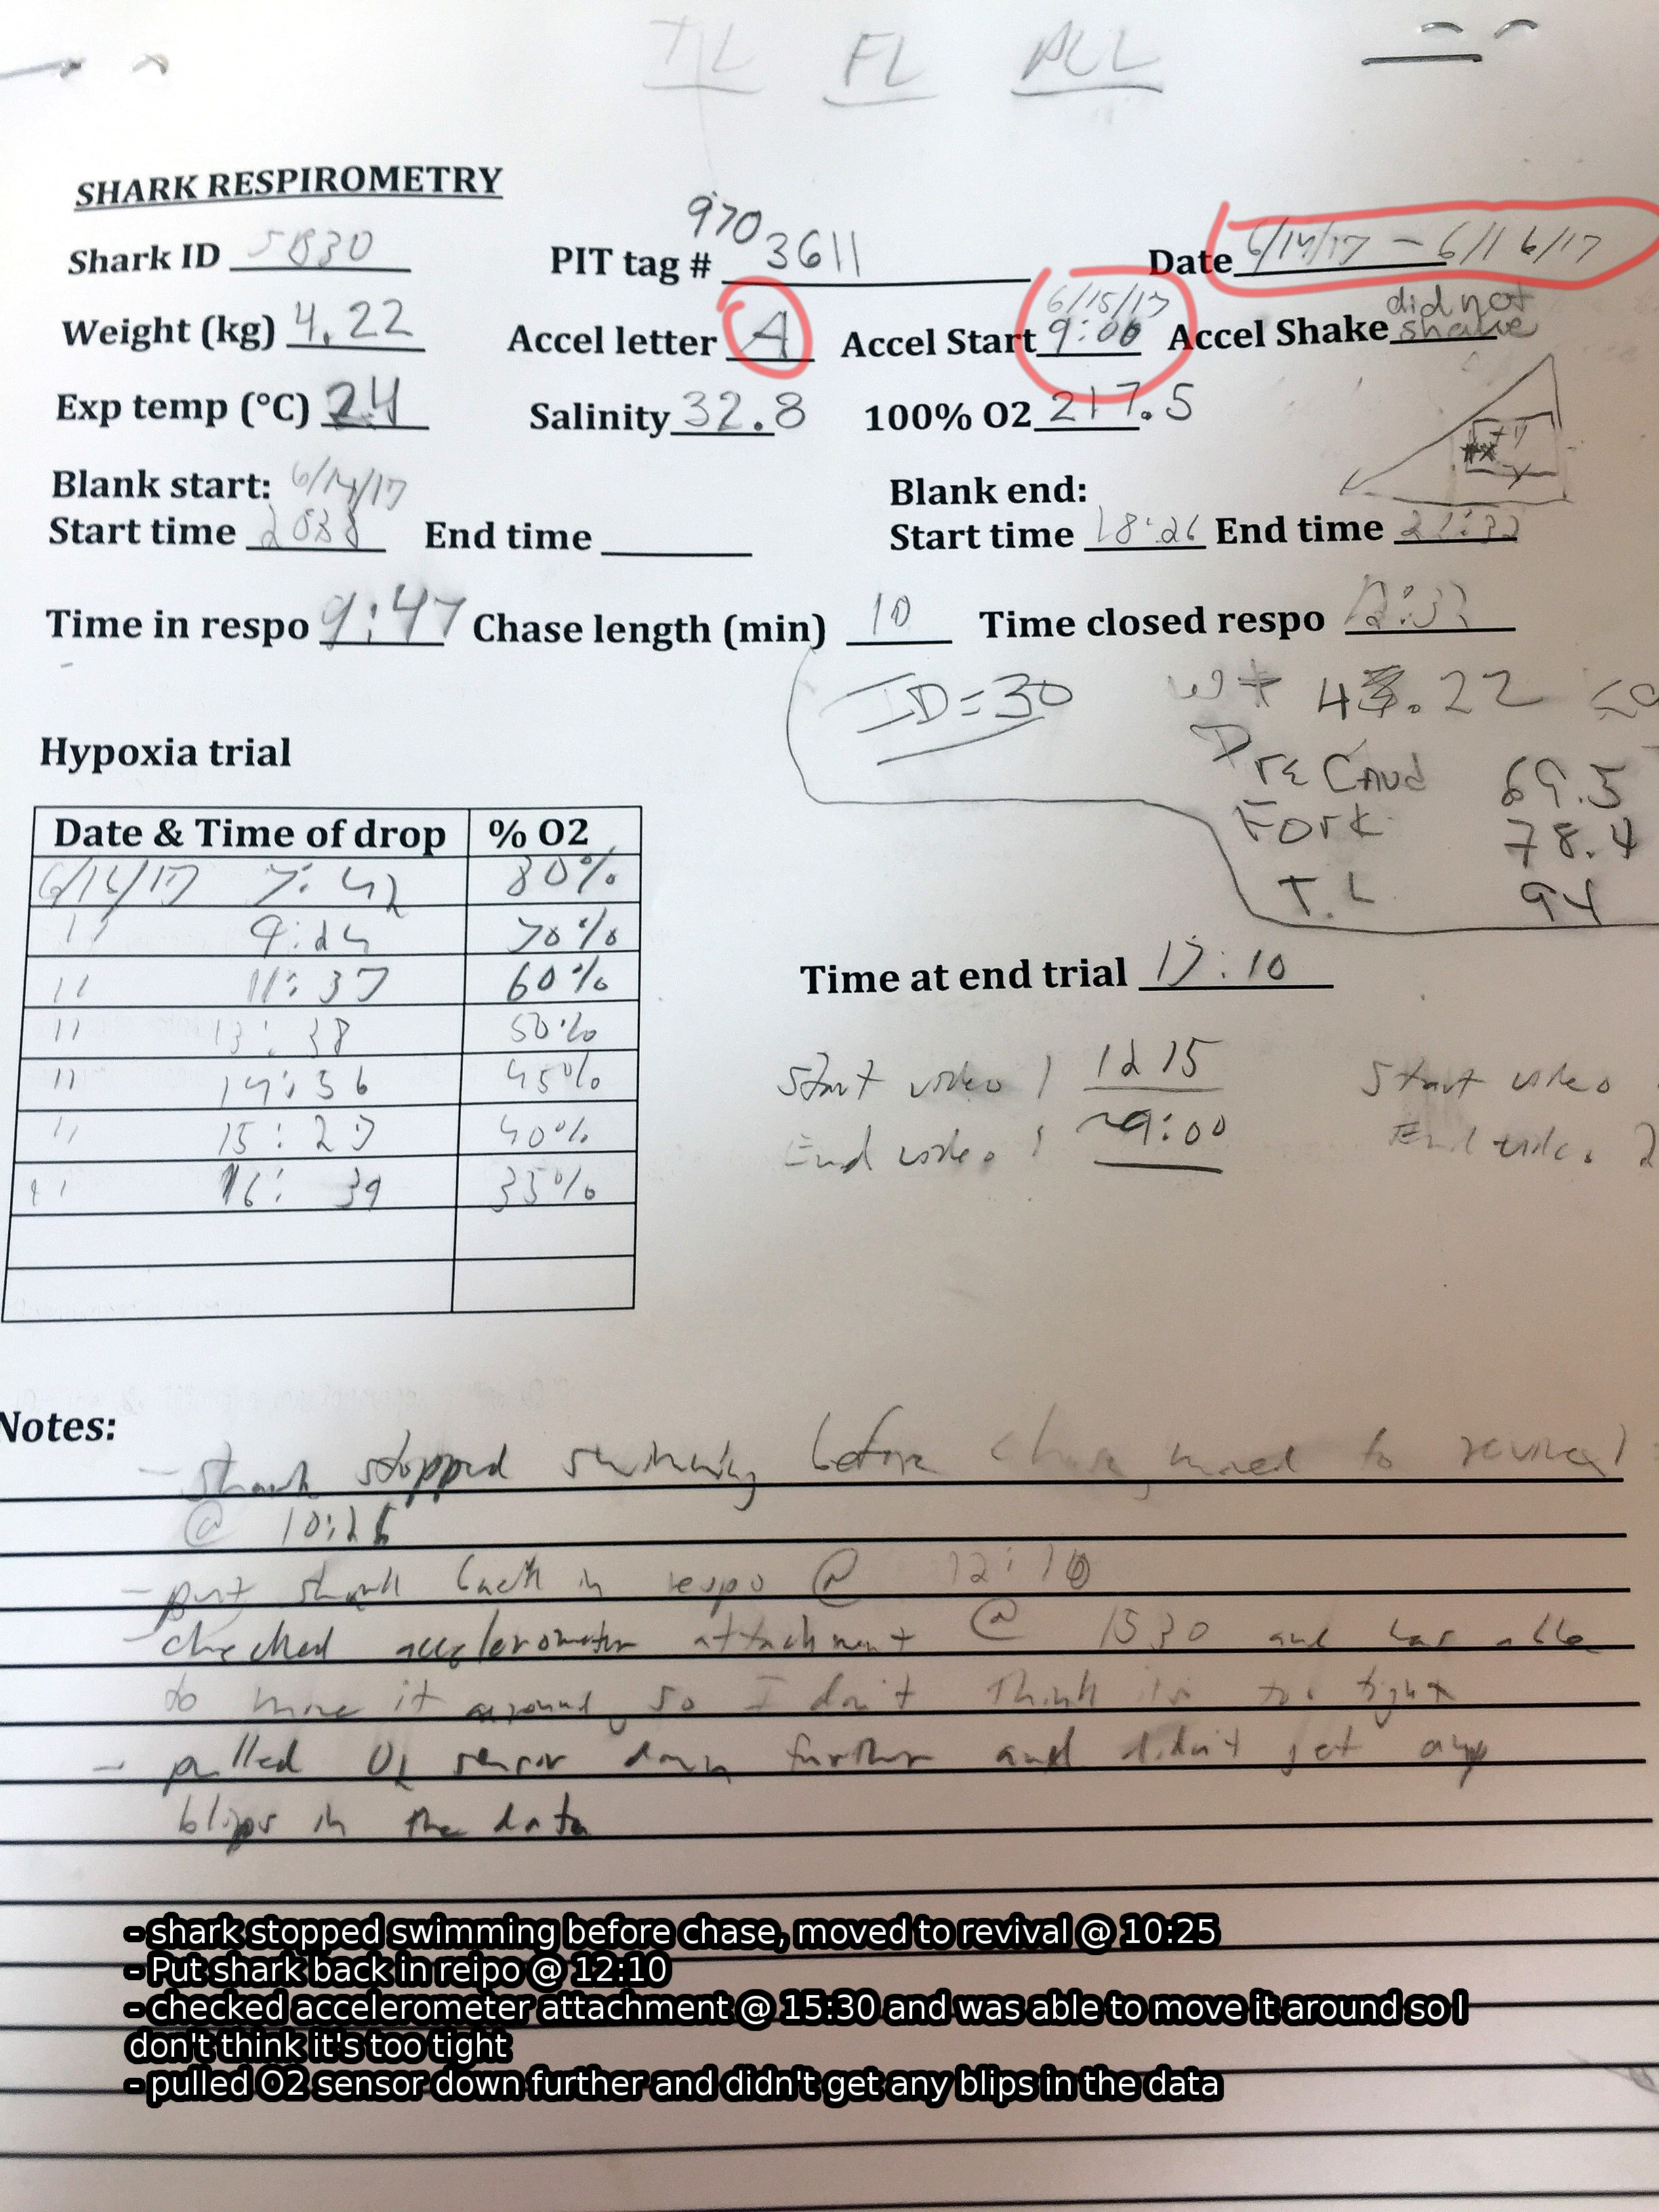 TL FL PCL
SHARK RESPIROMETRY
Shark ID SB30 PIT tag # 9703611 Date 6/14/17 - 6/16/17
Weight (kg) 4.22 Accel letter A Accel Start 6/15/17 9:00 Accel Shake did not shake
Exp temp (°C) 24 Salinity 32.8 100% O2 217.5
Blank start: 6/14/17 Blank end:
Start time End time Start time 18:26 End time 21:32
Time in respo 9:47 Chase length (min) 10 Time closed respo 12:32
ID=30 wt 4.22
Pre Caud 69.5
Fork 78.4
T.L 94
Hypoxia trial
Date & Time of drop % O2
6/16/17 7:42 80%
11 9:24 70%
11 11:37 60%
11 13:38 50%
11 14:36 45%
11 15:27 40%
11 16:39 35%
Time at end trial 17:10
Start video 1 1215 Start video
End video 1 ~9:00 End video 2
Notes:
- Shark stopped swimming before chase, moved to revival
@ 10:25
- put shark back in respo @ 12:10
- checked accelerometer attachment @ 1530 and was able
to move it around, so I don't think it's too tight
- pulled O2 sensor down further and didn't get any
blips in the data
- shark stopped swimming before chase, moved to revival @ 10:25
- Put shark back in reipo @ 12:10
- checked accelerometer attachment @ 15:30 and was able to move it around so I
don't think it's too tight
- pulled O2 sensor down further and didn't get any blips in the data